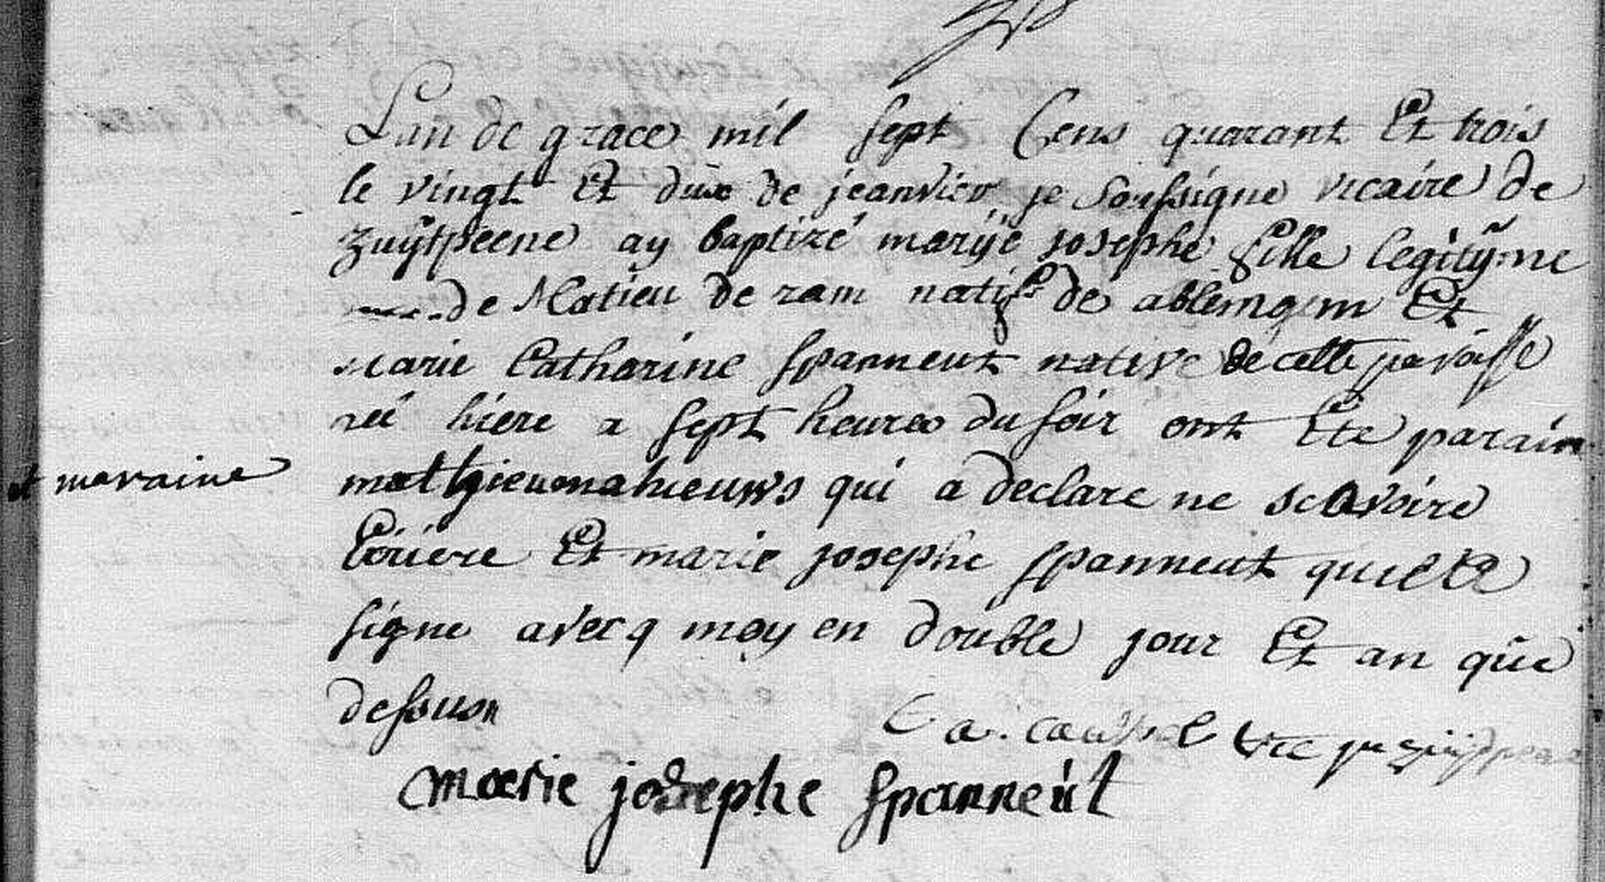 Lan de grace mil sept Cens quarant Et trois
le vingt Et duxe de jeanvier je Soussigne vicaire de
Zuÿtpeene aÿ baptizé marÿe josephe fille legitÿme
de Matieu de ram natif de ablemgem Et
Marie Catharine Spanneut native de cette paroisse
neé hiere a sept heures du soir ont Ete parain
et maraine
mathieu mahieuws qui a declare ne scavoire
Ecriere Et marie josephe Spanneut qui Et
signe avecq moy en double jour Et an que
dessus
C a. vic
marie josephe Spanneut